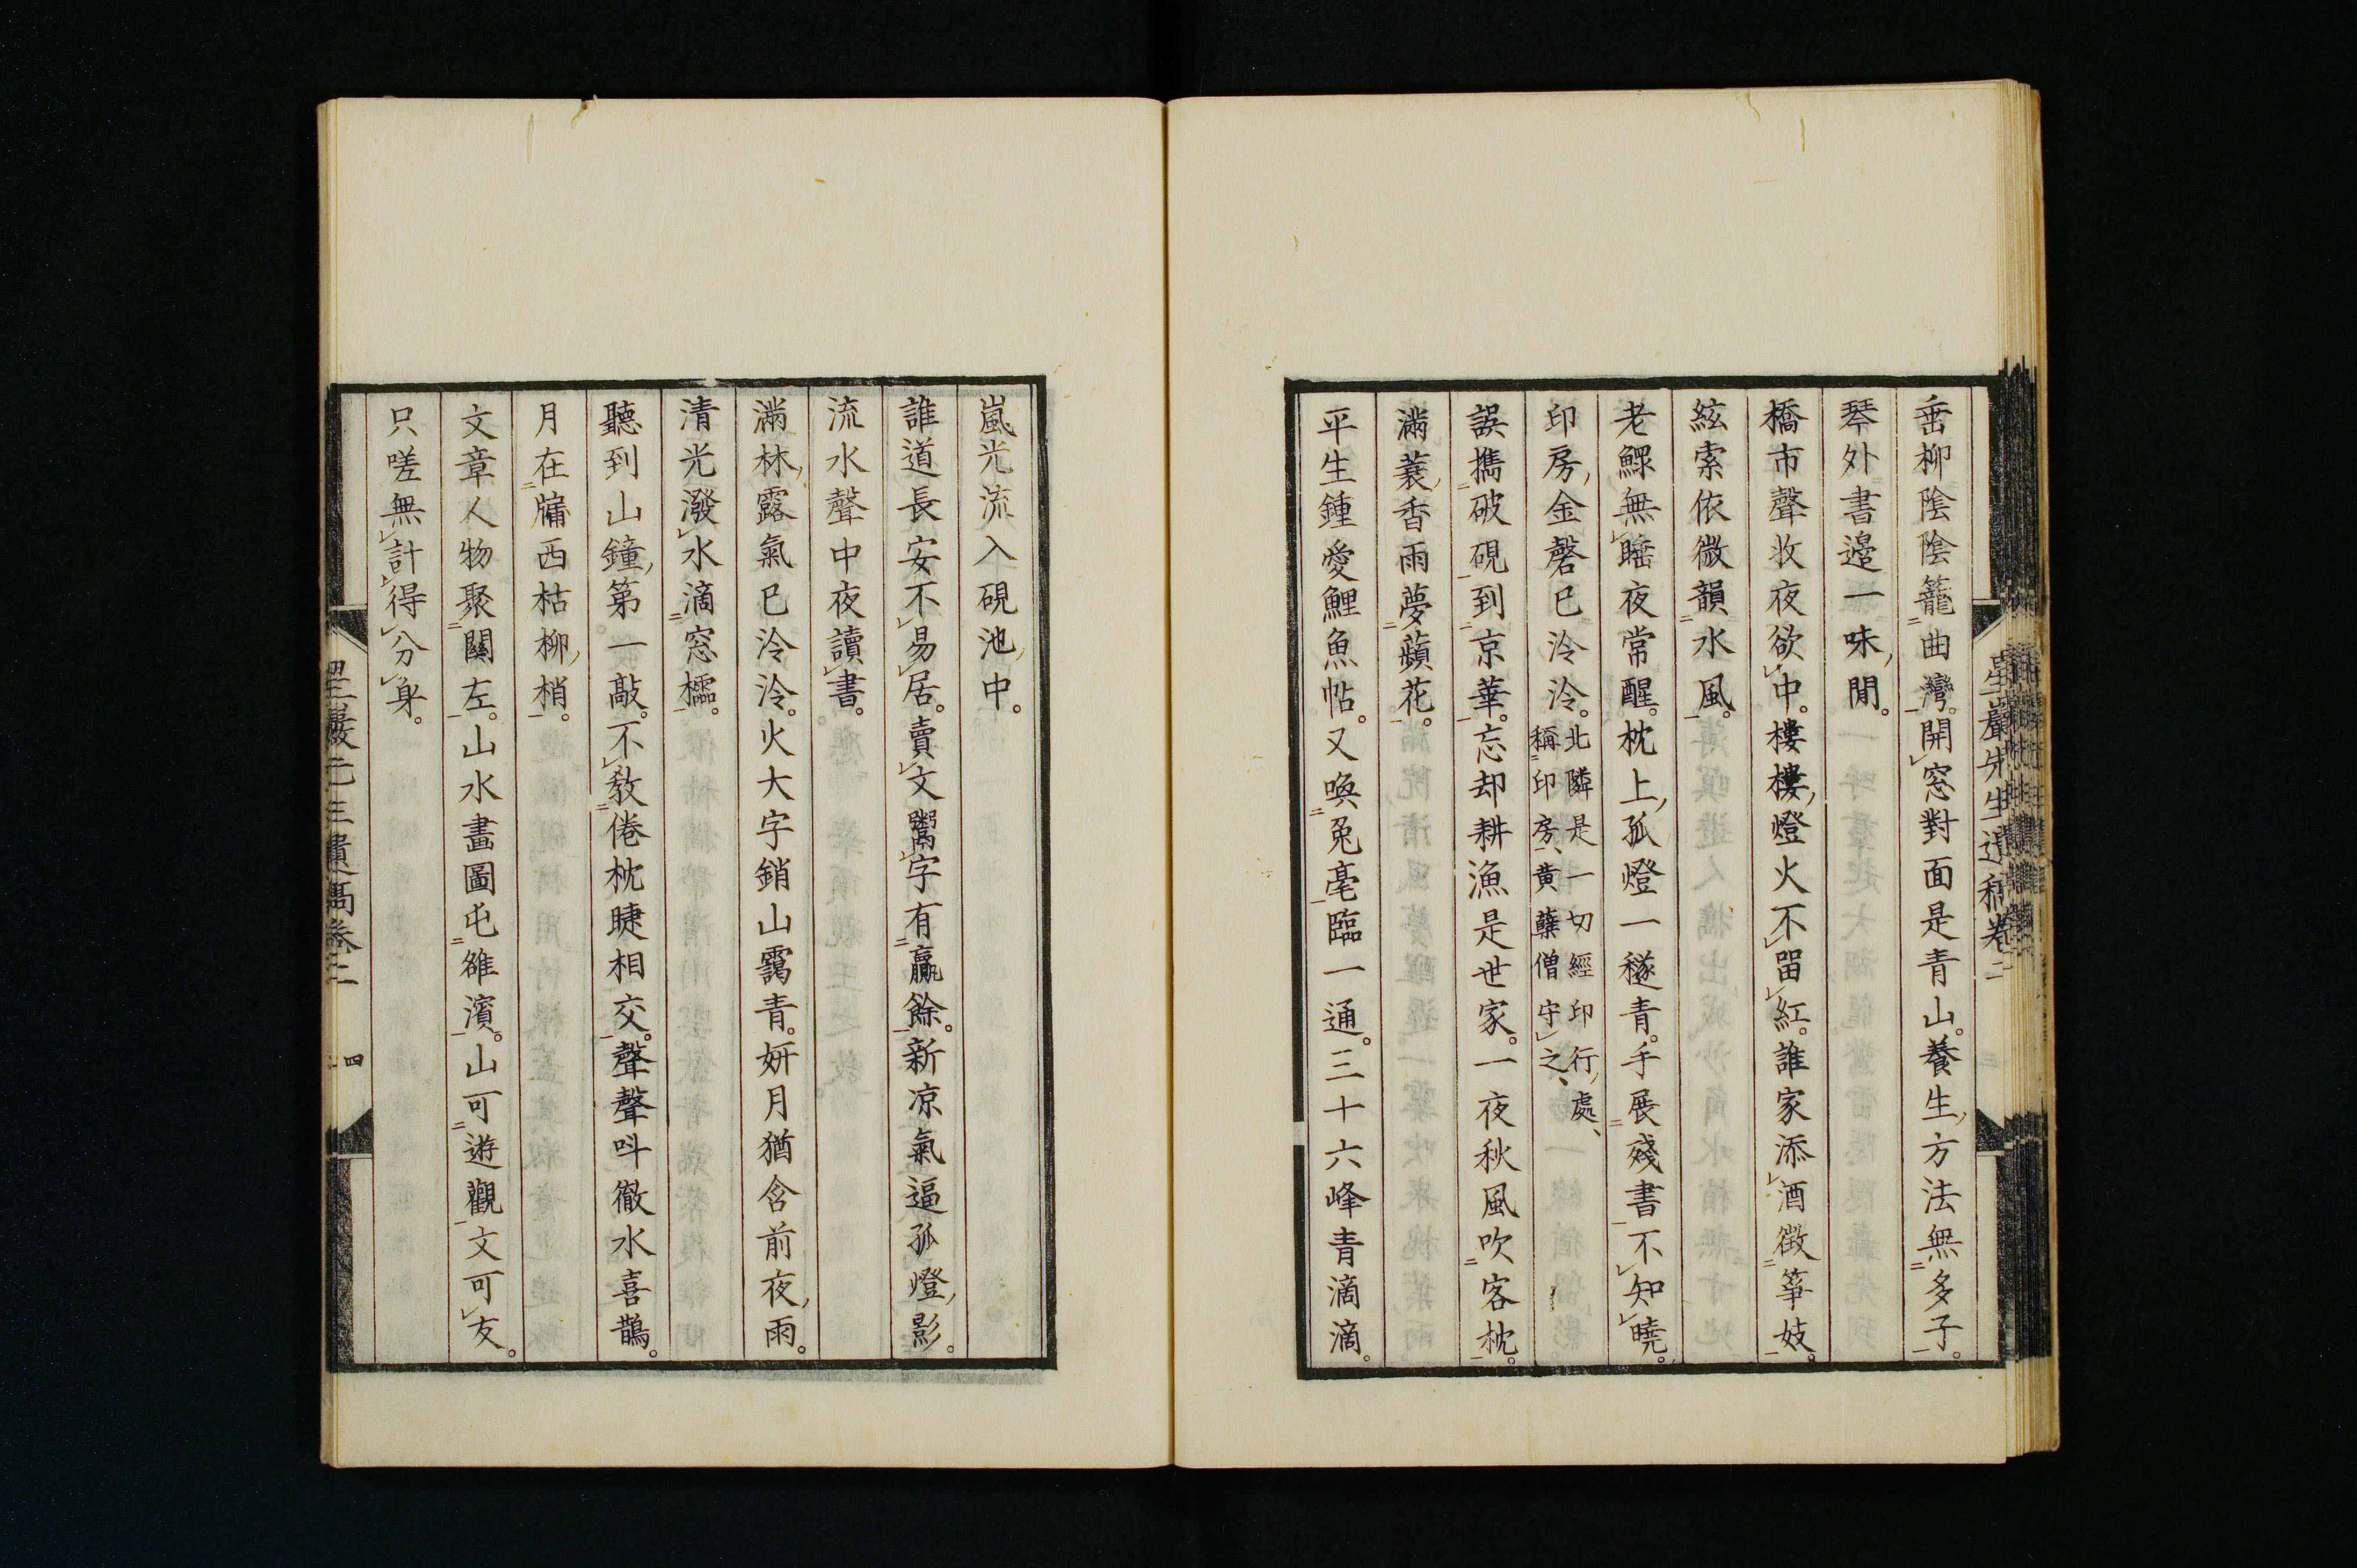 垂柳陰陰籠曲灣。開窓對面是青山。養生方法無多子。
琴外書邊一味閒。
橋市聲收夜欲中。樓樓燈火不留紅。誰家添酒徵箏妓。
絃索依微韻水風。
老鰥無睡夜常醒。枕上孤燈一穟青。手展殘書不知曉。
印房金磬已泠泠。北隣是一切經印行處、
稱印房、黄蘗僧守之、
誤攜破硯到京華。忘却耕漁是世家。一夜秋風吹客枕。
滿蓑香雨夢蘋花。
平生鍾愛鯉魚帖。又喚兔毫臨一通。三十六峰青滴滴。
嵐光流入硯池中。
誰道長安不易居。賣文鬻字有贏餘。新凉氣逼孤燈影。
流水聲中夜讀書。
滿林露氣已泠泠。火大字銷山靄青。妍月猶含前夜雨。
清光潑水滴窓櫺。
聽到山鐘第一敲。不教倦枕睫相交。聲聲叫徹水喜鵲。
月在牗西枯柳梢。
文章人物聚關左。山水畫圖屯雒濱。山可遊觀文可友。
只嗟無計得分身。
星巖先生遺稿卷二
四